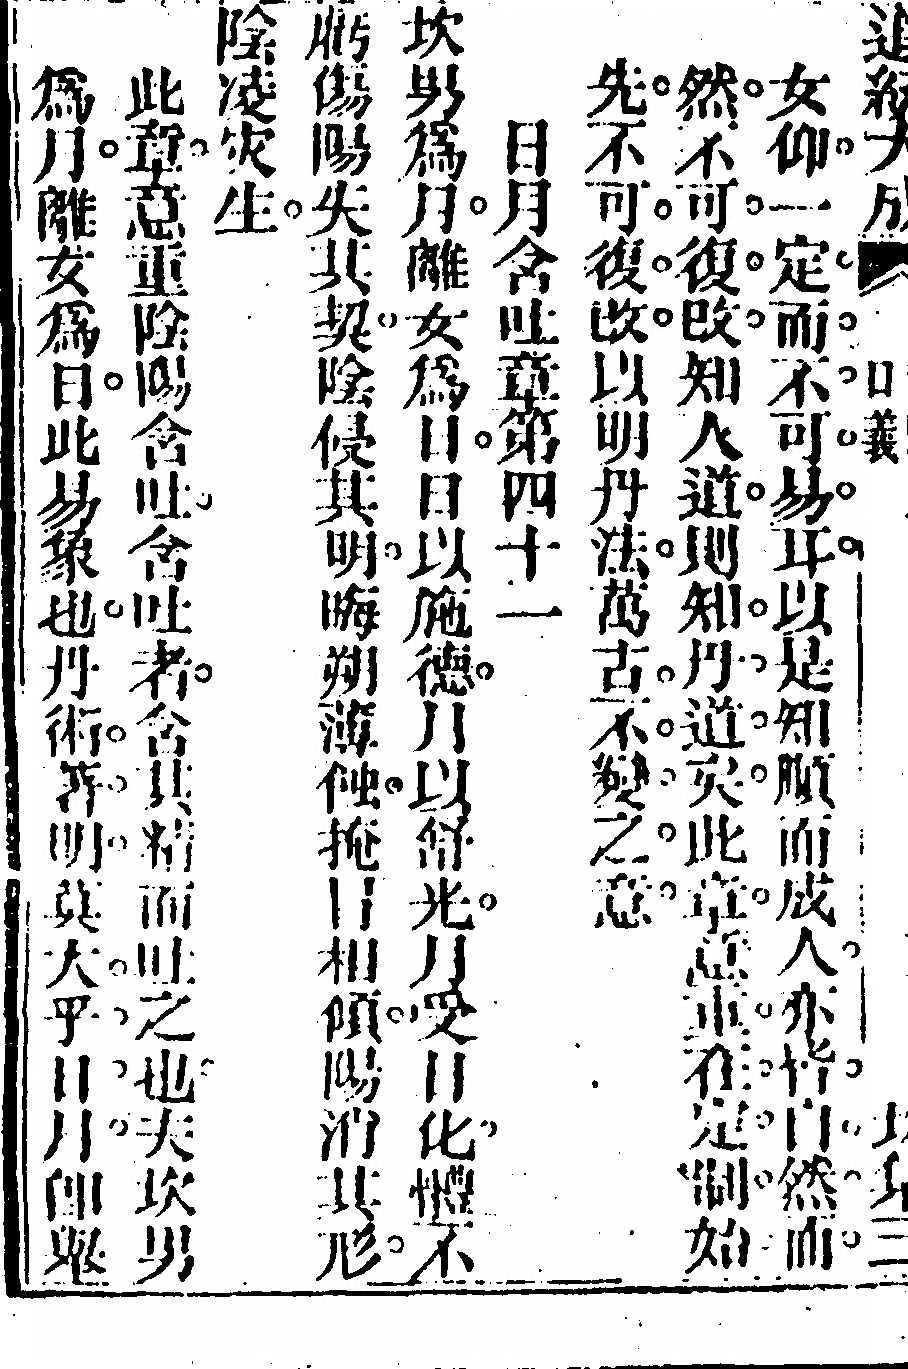 女仰一定而不可易耳以是知順而成人亦皆自然而
然不可復改知人道則知丹道矣此章意重在定制始
先不可復改以明丹法萬古不變之意
日月含吐章第四十一
坎男為月離女為日日以施德月以舒光月受日化體不
虧傷陽失其契陰侵其明晦朔薄蝕掩冒相傾陽消其形
陰凌灾生
此章意重陰陽含吐含吐者含其精而吐之也夫坎男
為月離女為日此易象也丹術著明莫大乎日月即此